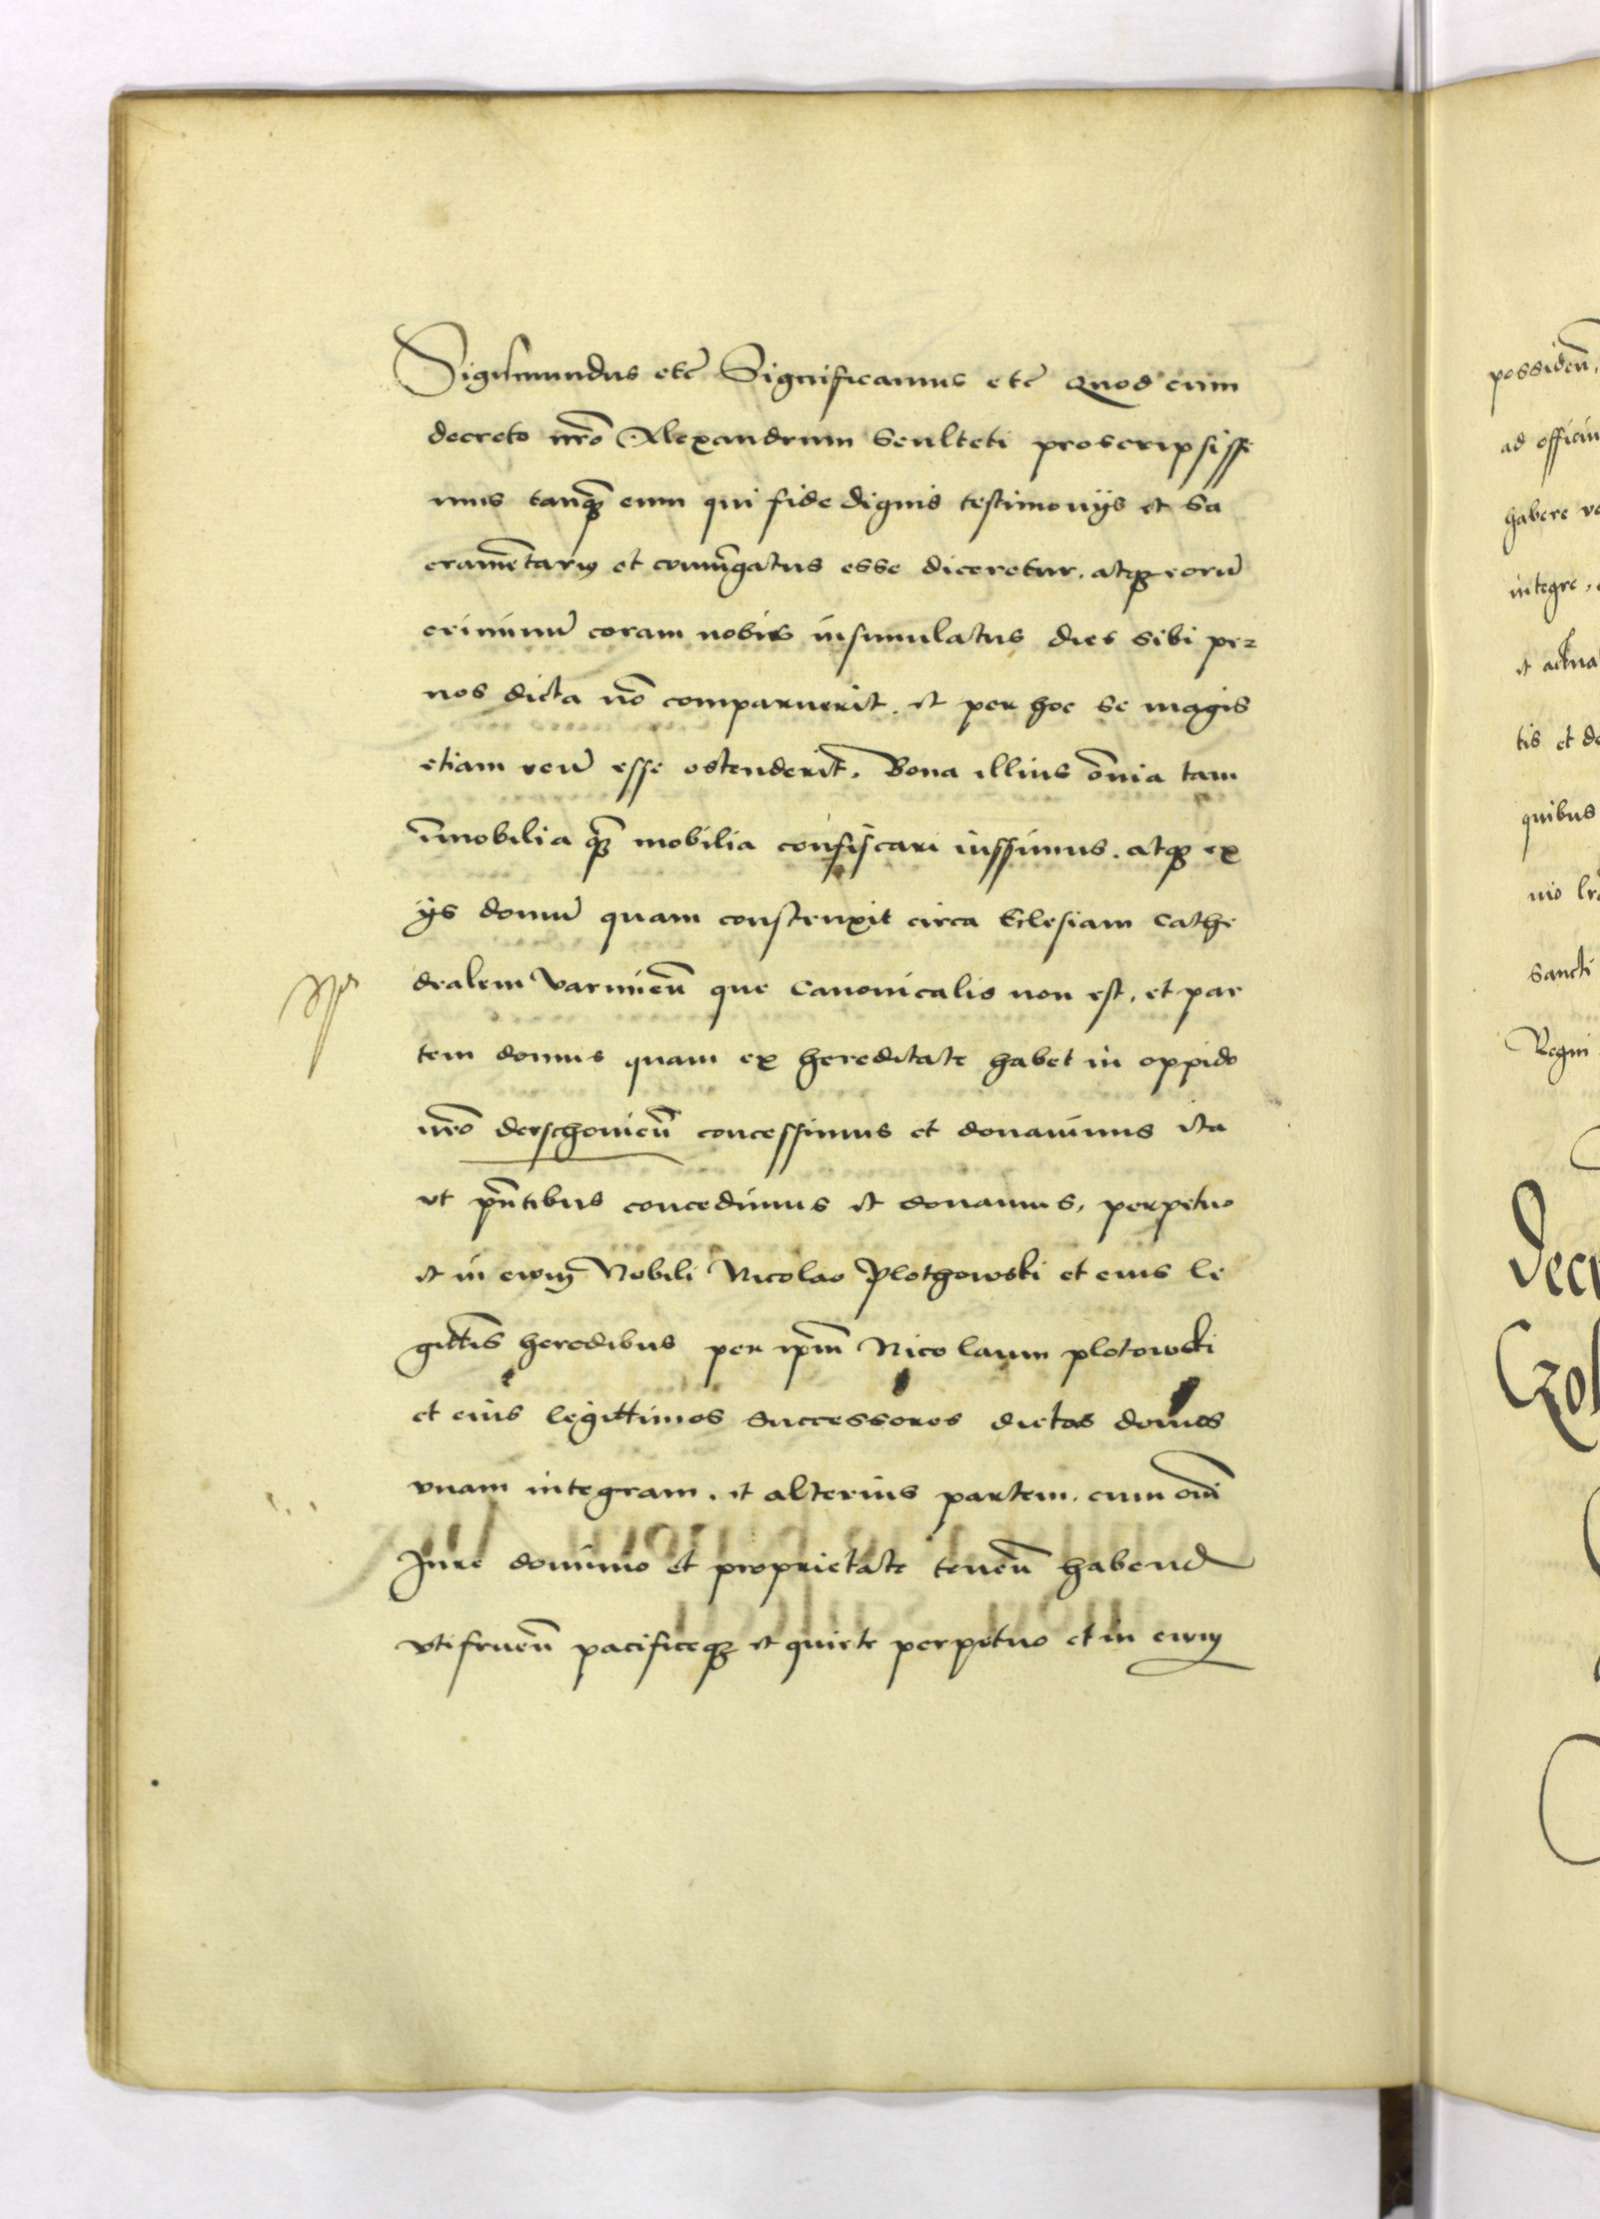 Sigismundus etc̃ Significamus etc̃ Quod cum
decreto nr̃o Alexandrum Sculteti proscripsisse
mus tanq̃ eum qui fide dignis testimonijs et Sa
cramẽtariꝯ et coniũgatus esse diceretur. atq̃ eorũ
criminũ coram nobis insimulatus dies sibi per
nos dicta nõ comparuerit. et per hoc se magis
etiam reũ esse ostenderit. Bona illius õnia tam
ĩmobilia q̃ mobilia confiscari iussimus. atq̃ ex
ijs domũ quam construxit circa Eclesiam Cathe
dralem Varmieñ que Canonicalis non est, et par
tem domus quam ex hereditate habet in oppido
nr̃o derschovieñ concessimus et donavimus ita
ut pñtibus concedimus et donamus, perpetuo
et in evuꝫ Nobili Nicolao Plothowski et eius le
gittĩs heredibus per ip̃m Nicolaum plotowski
et eius legittimos Successores dictas domos
unam integram. et alterius partem. cum om̃i
Jure dominio et proprietate teneñ habend
utifrueñ pacificeq̃ et quiete perpetuo et in evuꝫ
possideñ,
ad officiu
habere
integre,
et actua
tis et de
quibus
nio lr̃a
Sancti
Regni
Decr
Czol